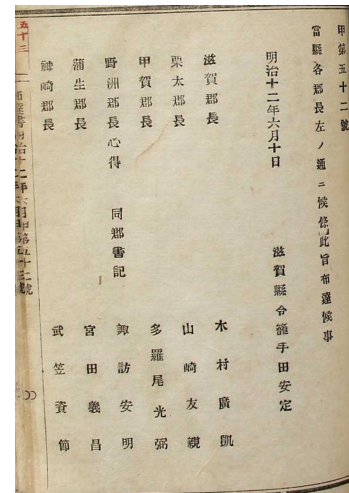 甲第五十二號
當縣各郡長左ノ通ニ候條此旨布達候事
明治十二年六月十日
滋賀縣令籠手田安定
滋賀郡長 木村廣凱
栗太郡長 山崎友親
甲賀郡長 多羅尾光弼
野洲郡長心得 同郡書記 諏訪安明
蒲生郡長 宮田義昌
神崎郡長 武笠資節
五十三